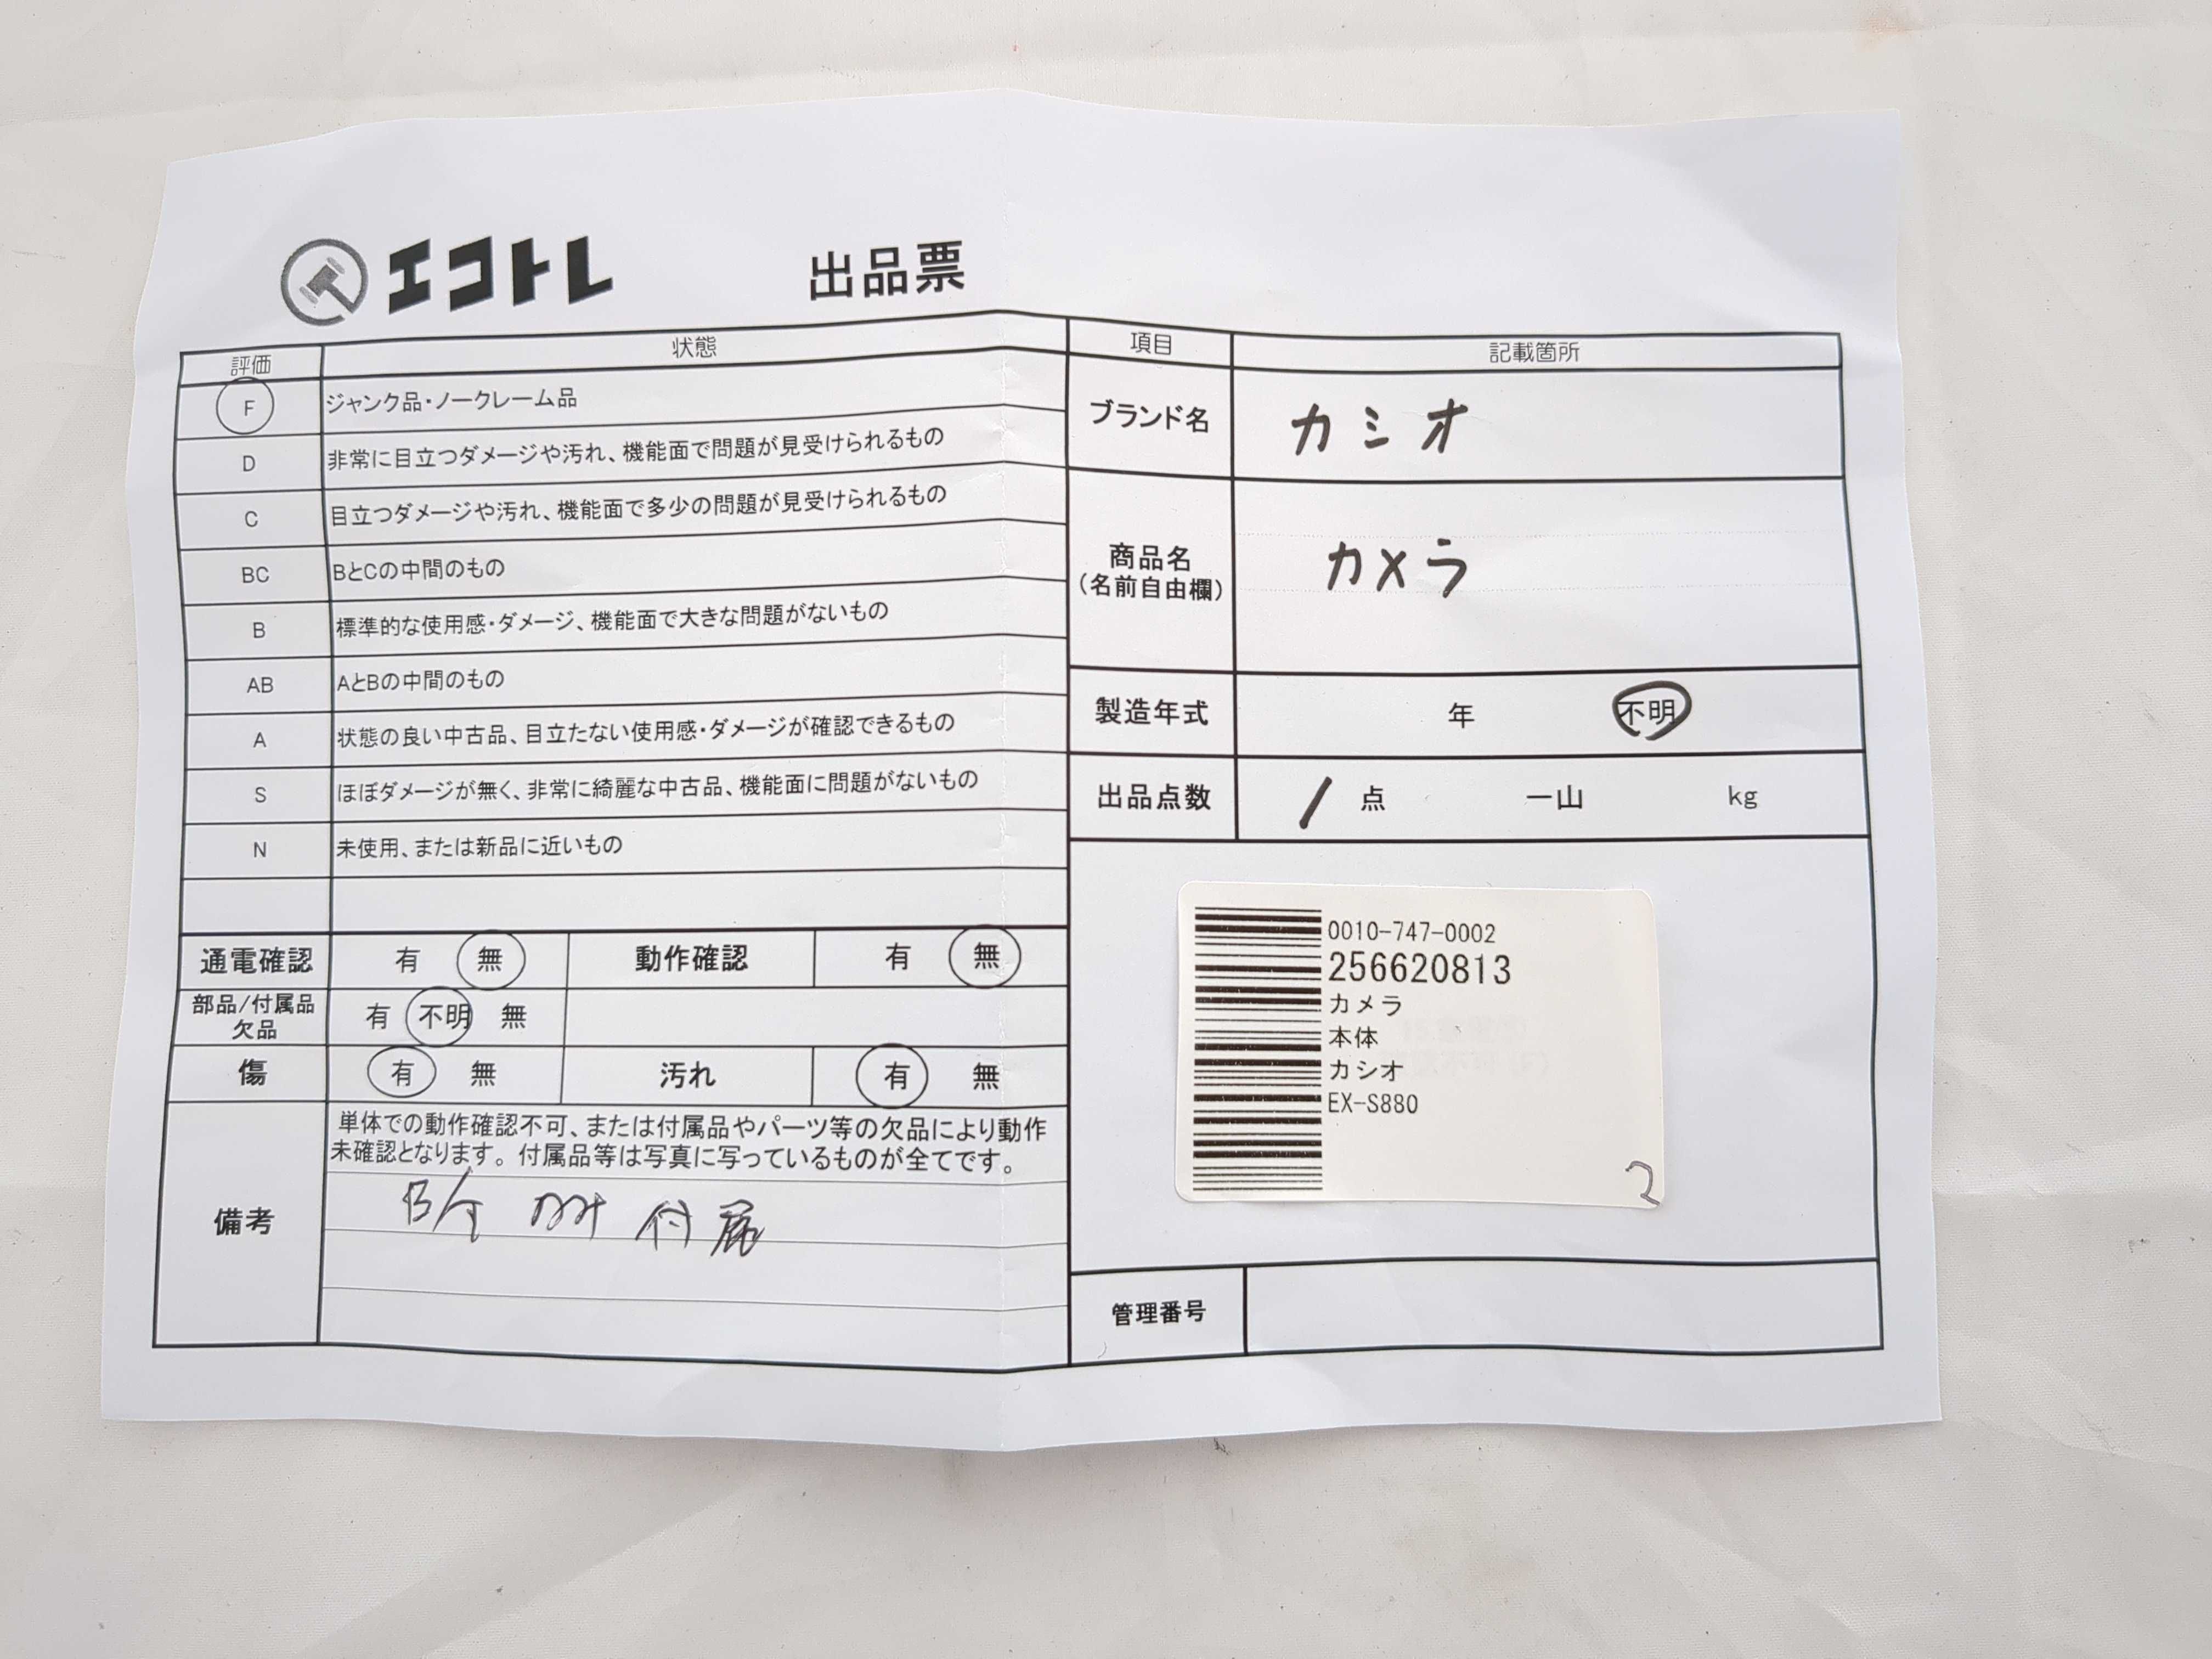 エコトレ 出品票
評価 状態
F ジャンク品・ノークレーム品
D 非常に目立つダメージや汚れ、機能面で問題が見受けられるもの
C 目立つダメージや汚れ、機能面で多少の問題が見受けられるもの
BC BとCの中間のもの
B 標準的な使用感・ダメージ、機能面で大きな問題がないもの
AB AとBの中間のもの
A 状態の良い中古品、目立たない使用感・ダメージが確認できるもの
S ほぼダメージが無く、非常に綺麗な中古品、機能面に問題がないもの
N 未使用、または新品に近いもの
通電確認 有 無 動作確認 有 無
部品/付属品
欠品
有 不明 無
傷 有 無 汚れ 有 無
備考
単体での動作確認不可、または付属品やパーツ等の欠品により動作
未確認となります。付属品等は写真に写っているものが全てです。
付属
項目 記載箇所
ブランド名 カシオ
商品名
(名前自由欄)
カメラ
製造年式 年 不明
出品点数 1 点 一山 kg
0010-747-0002
256620813
カメラ
本体
カシオ
EX-S880
2
管理番号